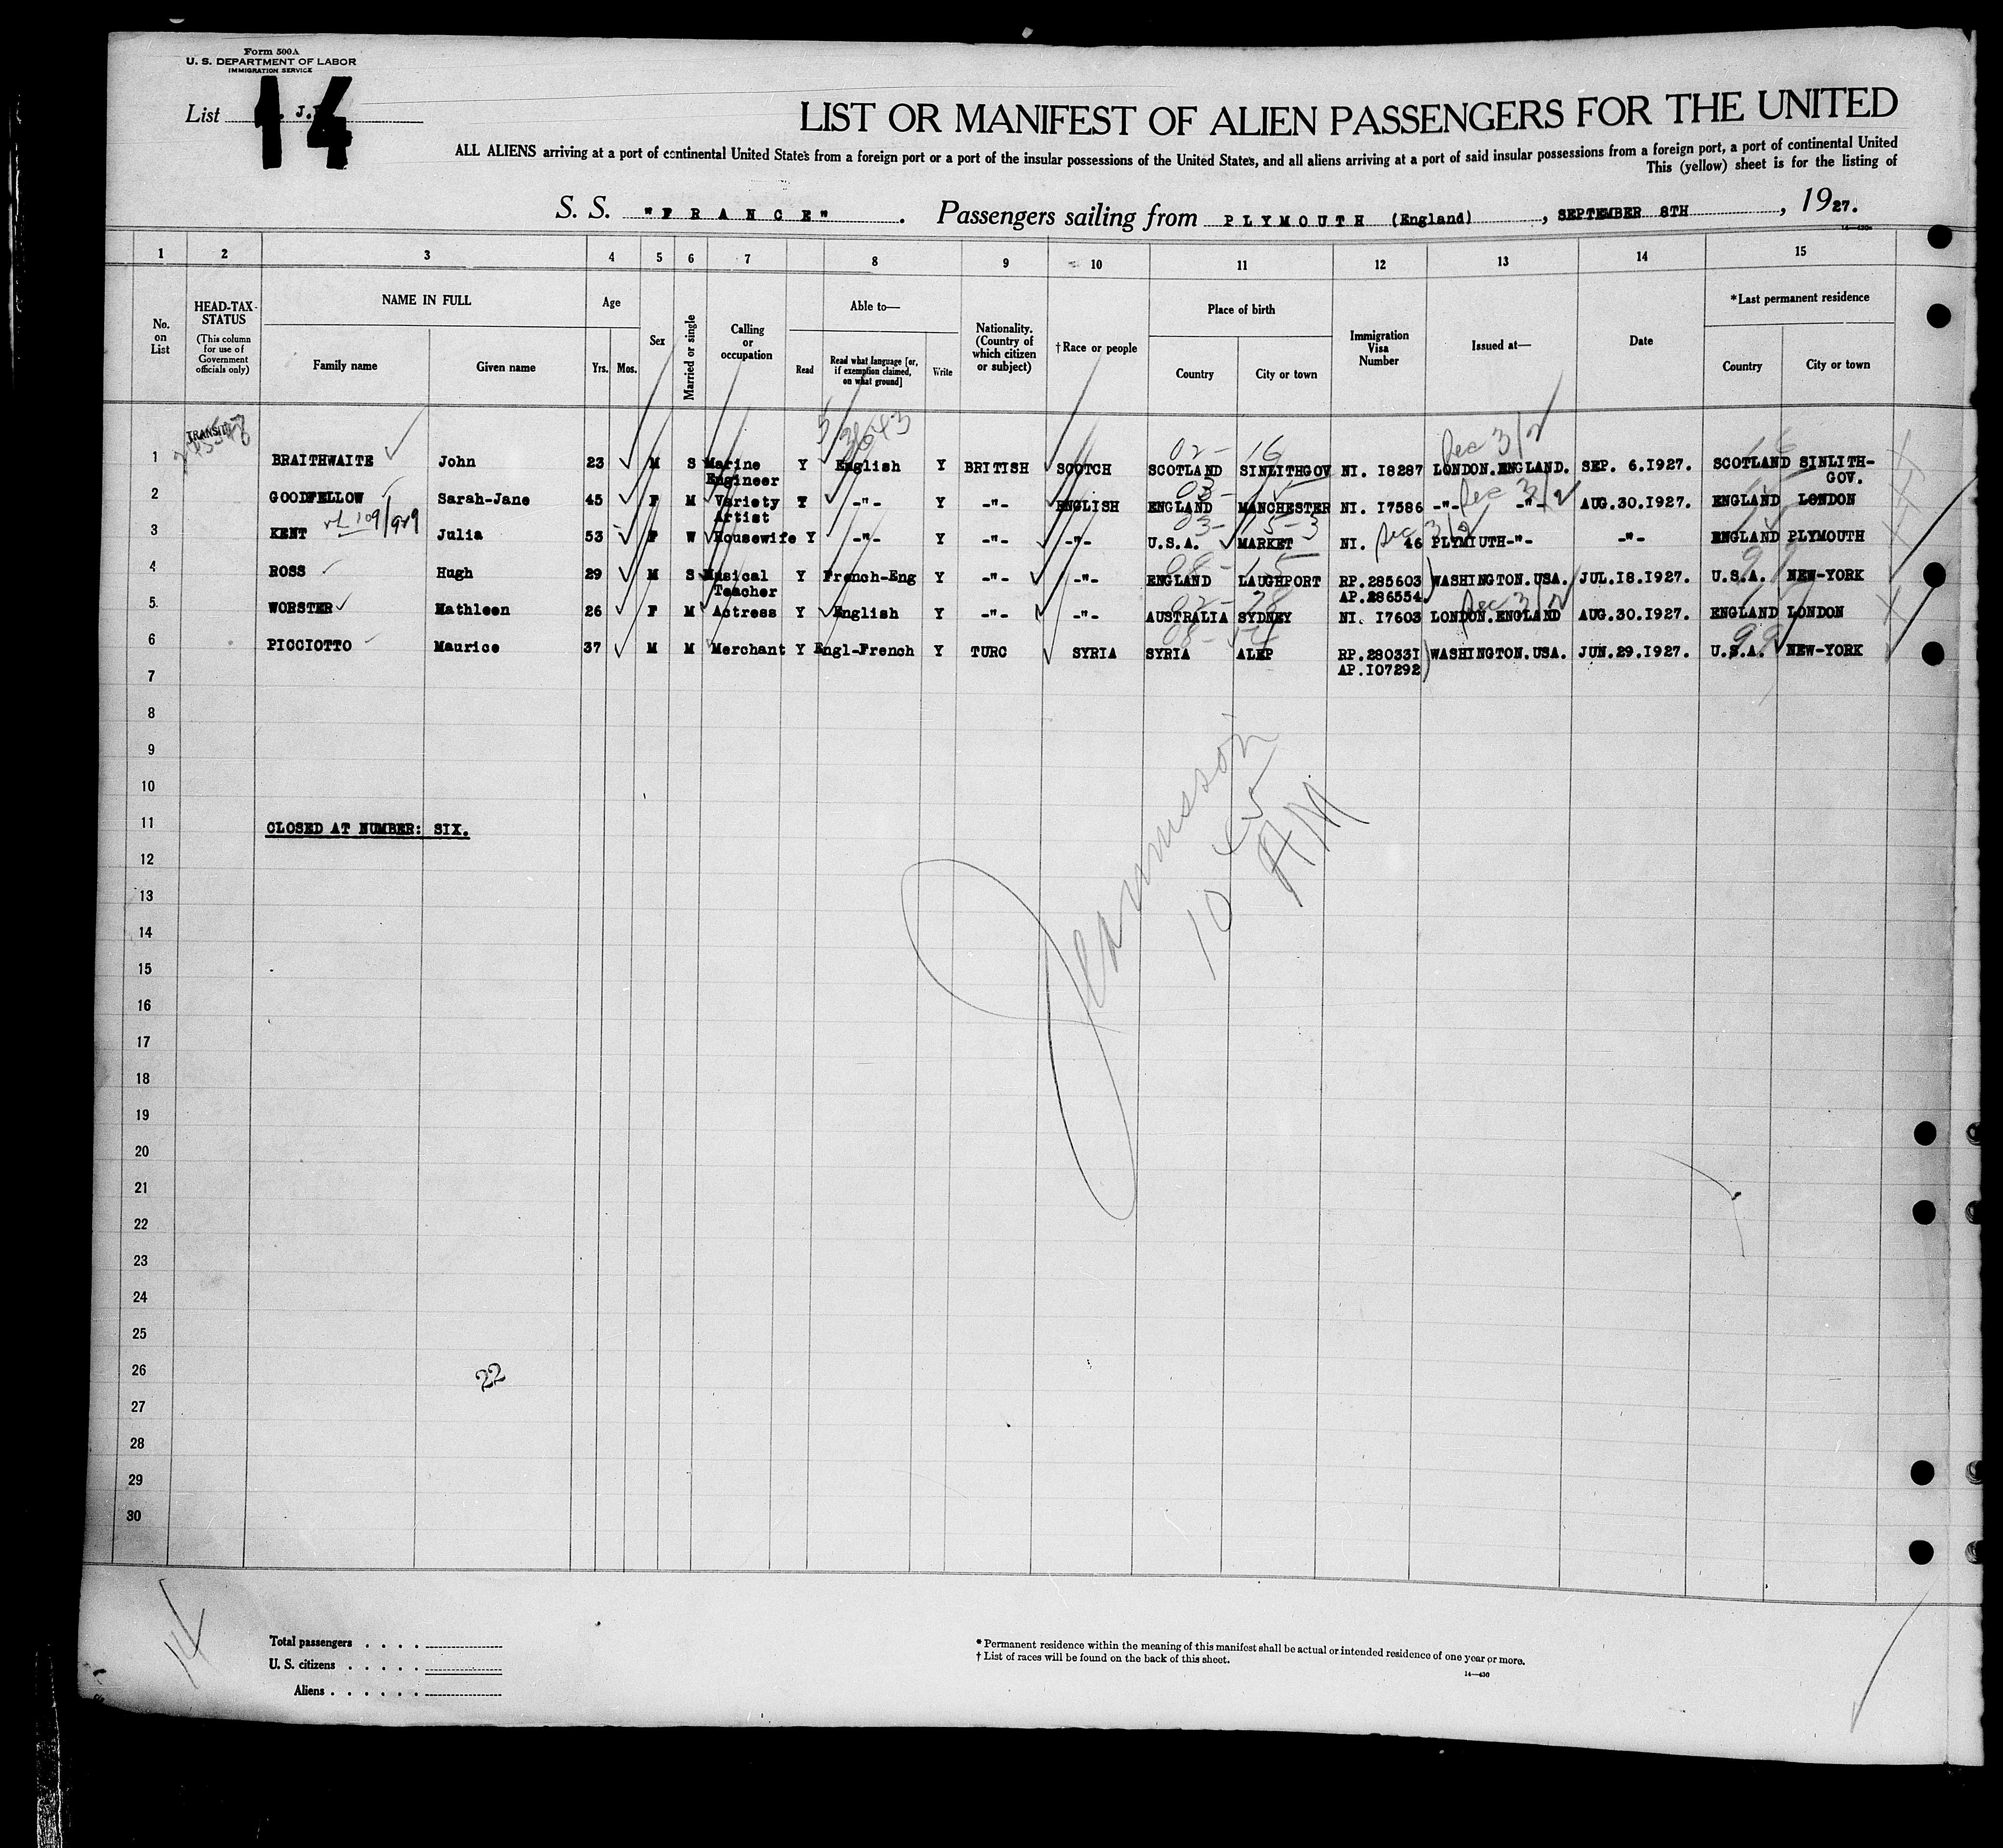 Form 500A
U. S. DEPARTMENT OF LABOR
IMMIGRATION SERVICE
List 14
LIST OR MANIFEST OF ALIEN PASSENGERS FOR THE UNITED
ALL ALIENS arriving at a port of continental United States from a foreign port or a port of the insular possessions of the United States, and all aliens arriving at a port of said insular possessions from a foreign port, a port of continental United
This (yellow) sheet is for the listing of
S. S. "FRANCE". Passengers sailing from PLYMOUTH (England), SEPTEMBER 8TH, 1927.
1 2 3 4 5 6 7 8 9 10 11 12 13 14 15
No. on List
HEAD-TAX STATUS
(This column for use of Government officials only)
NAME IN FULL
Family name Given name
Age
Yrs. Mos.
Sex
Married or single
Calling or occupation
Able to—
Read
Read what language [or, if exemption claimed, on what ground]
Write
Nationality. (Country of which citizen or subject)
†Race or people
Place of birth
Country City or town
Immigration Visa Number
Issued at—
Date
*Last permanent residence
Country City or town
TRANSIT
Dec 3/2
1 BRAITHWAITE John 23 M S Marine Engineer Y English Y BRITISH SCOTCH SCOTLAND SINLITHGOV NI. I8287 LONDON.ENGLAND. SEP. 6.I927. SCOTLAND SINLITH-GOV.
2 GOODFELLOW Sarah-Jane 45 F M Variety Artist Y -"- Y -"- ENGLISH ENGLAND MANCHESTER NI. I7586 -"- -"- AUG.30.I927. ENGLAND LONDON
3 KENT Julia 53 F W Housewife Y -"- Y -"- -"- U.S.A. MARKET NI. 46 PLYMIUTH-"- -"- ENGLAND PLYMOUTH
4 ROSS Hugh 29 M S Musical Teacher Y French-Eng Y -"- -"- ENGLAND LAUGHPORT RP.285603 AP.286554 WASHINGTON.USA. JUL.I8.I927. U.S.A. NEW-YORK
5 WORSTER Mathleen 26 F M Actress Y English Y -"- -"- AUSTRALIA SYDNEY NI. I7603 LONDON.ENGLAND AUG.30.I927. ENGLAND LONDON
6 PICCIOTTO Maurice 37 M M Merchant Y Engl-French Y TURC SYRIA SYRIA ALEP RP.28033I AP.I07292 WASHINGTON.USA. JUN.29.I927. U.S.A. NEW-YORK
7
8
9
10
11 CLOSED AT NUMBER: SIX.
12
13
14
15
16
17
18
19
20
21
22
23
24
25
26
27
28
29
30
10 45
AM
22
14
Total passengers
U. S. citizens
Aliens
* Permanent residence within the meaning of this manifest shall be actual or intended residence of one year or more.
† List of races will be found on the back of this sheet.
14—430